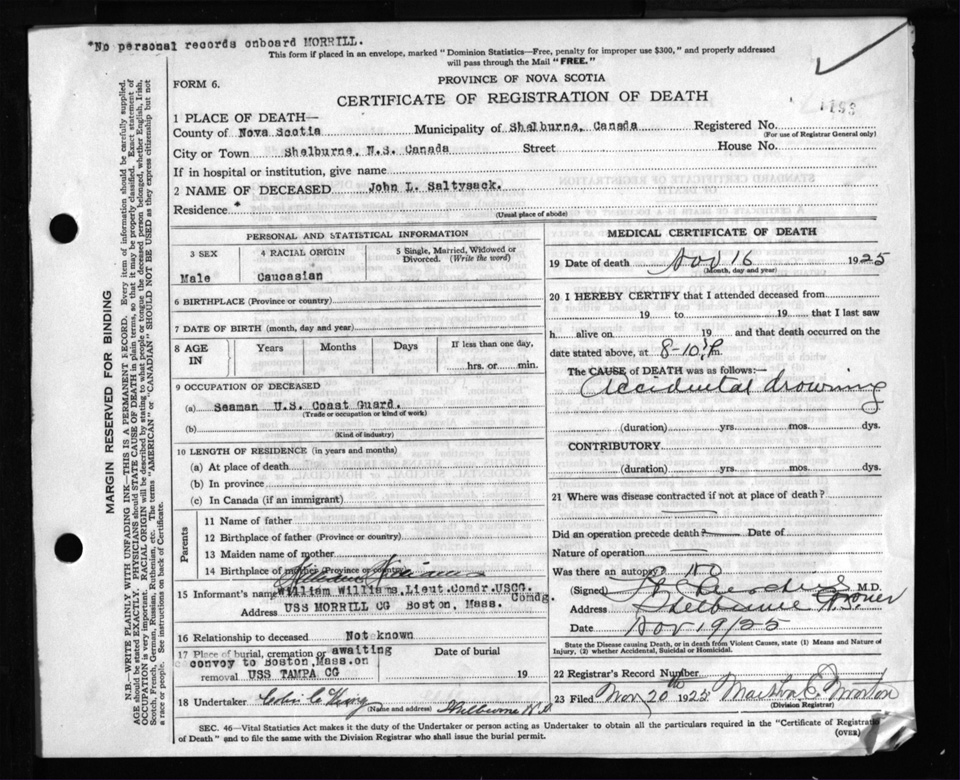 *No personal records onboard MORRILL.
This form if placed in an envelope, marked "Dominion Statistics—Free, penalty for improper use $300," and properly addressed
will pass through the Mail "FREE."
PROVINCE OF NOVA SCOTIA
FORM 6.
CERTIFICATE OF REGISTRATION OF DEATH
1 PLACE OF DEATH—
County of Nova Scotia Municipality of Shelburne, Canada Registered No.
(For use of Registrar General only)
City or Town Shelburne, N.S. Canada Street House No.
If in hospital or institution, give name
2 NAME OF DECEASED John L. Saltysack.
Residence *
(Usual place of abode)
PERSONAL AND STATISTICAL INFORMATION
3 SEX 4 RACIAL ORIGIN 5 Single, Married, Widowed or Divorced. (Write the word)
Male Caucasian
6 BIRTHPLACE (Province or country)
7 DATE OF BIRTH (month, day and year)
8 AGE IN Years Months Days If less than one day,
hrs. or min.
9 OCCUPATION OF DECEASED
(a) Seaman U.S. Coast Guard.
(Trade or occupation or kind of work)
(b)
(Kind of industry)
10 LENGTH OF RESIDENCE (in years and months)
(a) At place of death
(b) In province
(c) In Canada (if an immigrant)
Parents
11 Name of father
12 Birthplace of father (Province or country)
13 Maiden name of mother
14 Birthplace of mother (Province or country)
William Williams
15 Informant's name William Williams, Lieut.Comdr.USCG.
Comdg.
Address USS MORRILL CG Boston, Mass.
16 Relationship to deceased Not known
17 Place of burial, cremation or awaiting Date of burial
convoy to Boston,Mass.on
removal USS TAMPA CG 19
18 Undertaker
(Name and address) Shelburne N.S
MEDICAL CERTIFICATE OF DEATH
19 Date of death Nov 16 1925
(Month, day and year)
20 I HEREBY CERTIFY that I attended deceased from
19 to 19 that I last saw
h alive on 19 and that death occurred on the
date stated above, at 8-10 P.m.
The CAUSE of DEATH was as follows:—
Accidental drowning
(duration) yrs. mos. dys.
CONTRIBUTORY
(duration) yrs. mos. dys.
21 Where was disease contracted if not at place of death?
Did an operation precede death? Date of
Nature of operation
Was there an autopsy? no
(Signed) M.D.
Coroner
Address Shelburne N.S.
Date Nov 19/25
State the Disease causing Death, or in death from Violent Causes, state (1) Means and Nature of
Injury, (2) whether Accidental, Suicidal or Homicidal.
22 Registrar's Record Number
23 Filed Nov 20th 1925 Martha E. Morton
(Division Registrar)
SEC. 46—Vital Statistics Act makes it the duty of the Undertaker or Person acting as Undertaker to obtain all the particulars required in the "Certificate of Registration
of Death" and to file the same with the Division Registrar who shall issue the burial permit.
(OVER)
MARGIN RESERVED FOR BINDING
N.B.—WRITE PLAINLY WITH UNFADING INK—THIS IS A PERMANENT RECORD. Every item of information should be carefully supplied.
AGE should be stated EXACTLY. PHYSICIANS should STATE CAUSE OF DEATH in plain terms, so that it may be properly classified. Exact statement of
OCCUPATION is very important. RACIAL ORIGIN will be described by stating to what people or tongue the deceased person belonged, whether English, Irish,
Scotch, French, German, Russian, Ruthenian, etc. The terms "AMERICAN" or "CANADIAN" SHOULD NOT BE USED as they express citizenship but not
a race or people. See instructions on back of Certificate.